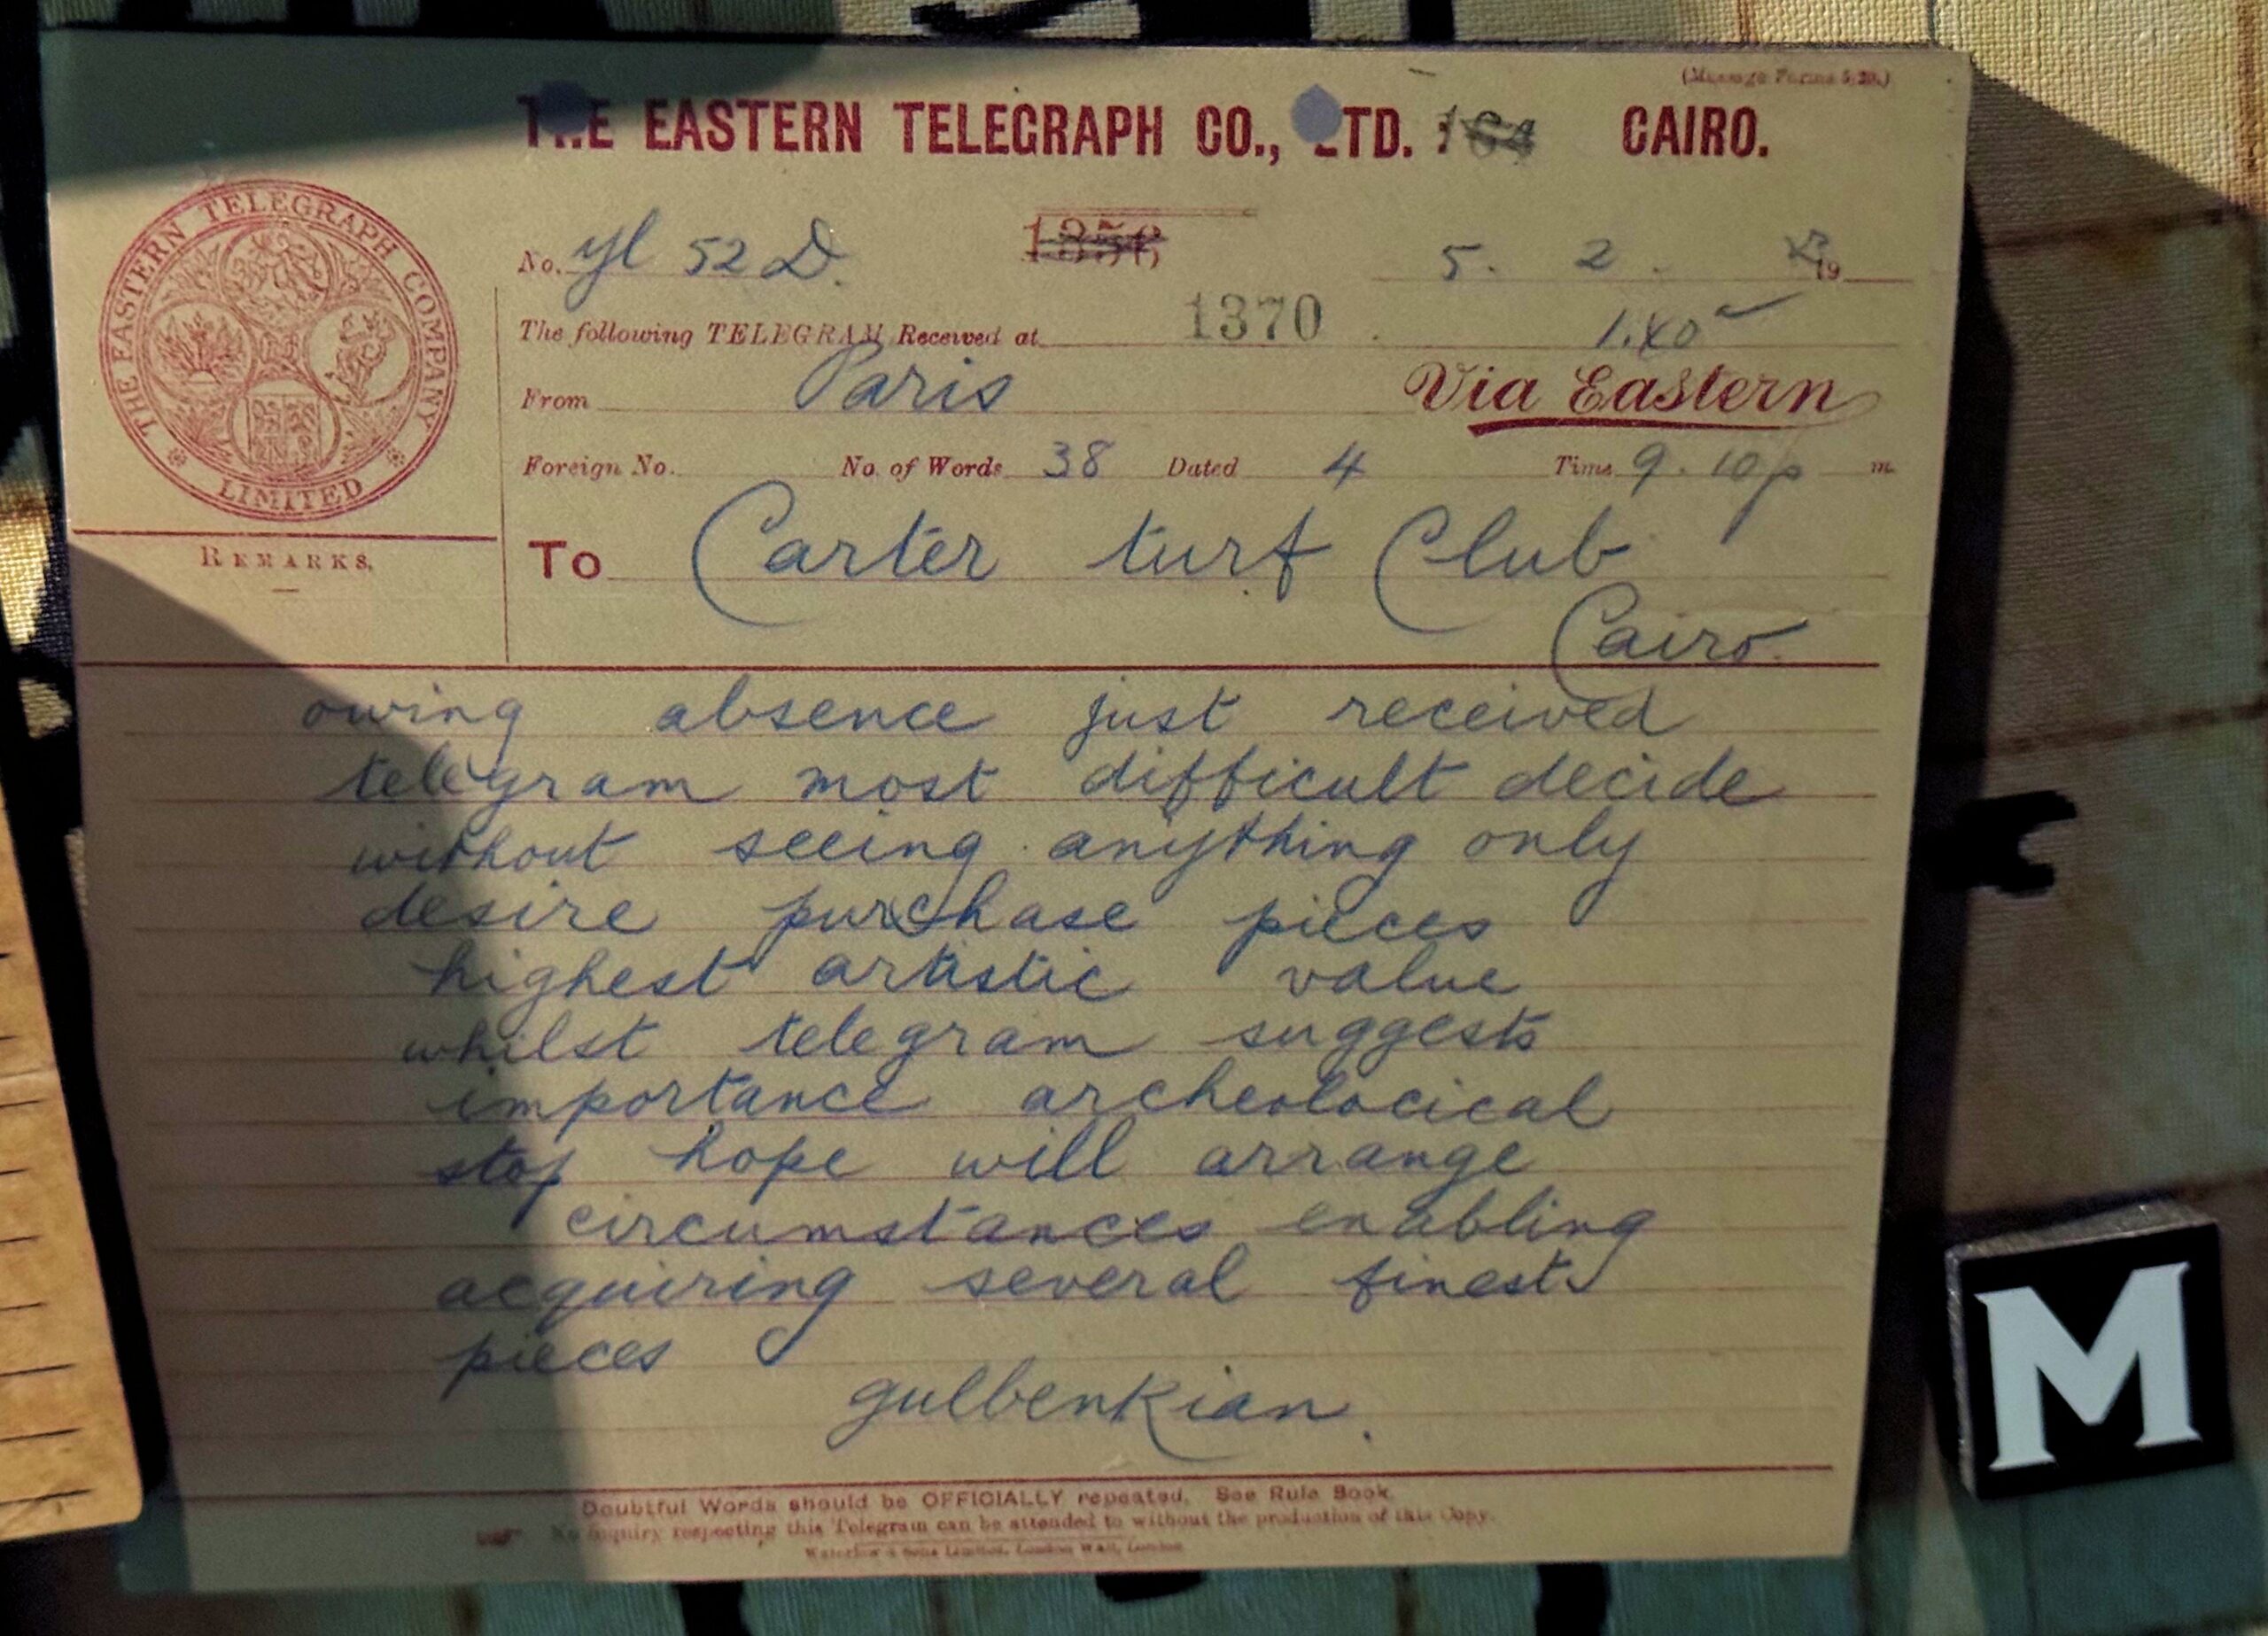 (Message Forms 5/20.)
THE EASTERN TELEGRAPH CO., LTD. 164 CAIRO.
THE EASTERN TELEGRAPH COMPANY
LIMITED
No. yl 52 D. 5. 2. 19
The following TELEGRAM Received at 1370
From Paris Via Eastern
Foreign No. No. of Words 38 Dated 4 Time 9.10 p m.
REMARKS.
To Carter turf Club
Cairo.
owing absence just received
telegram most difficult decide
without seeing anything only
desire purchase pieces
highest artistic value
whilst telegram suggests
importance archeolocical
stop hope will arrange
circumstances enabling
acquiring several finest
pieces
gulbenkian.
Doubtful Words should be OFFICIALLY repeated. See Rule Book.
No inquiry respecting this Telegram can be attended to without the production of this Copy.
Waterlow & Sons Limited, London Wall, London
M